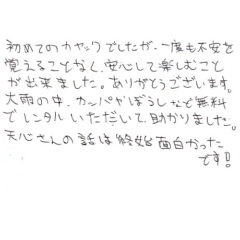 初めてのカヤックでしたが、一度も不安を
覚えることなく、安心して楽しむこと
が出来ました。ありがとうございます。
大雨の中、カッパやぼうしなど無料
でレンタルいただいて、助かりました。
天心さんの話は終始面白かった
です!